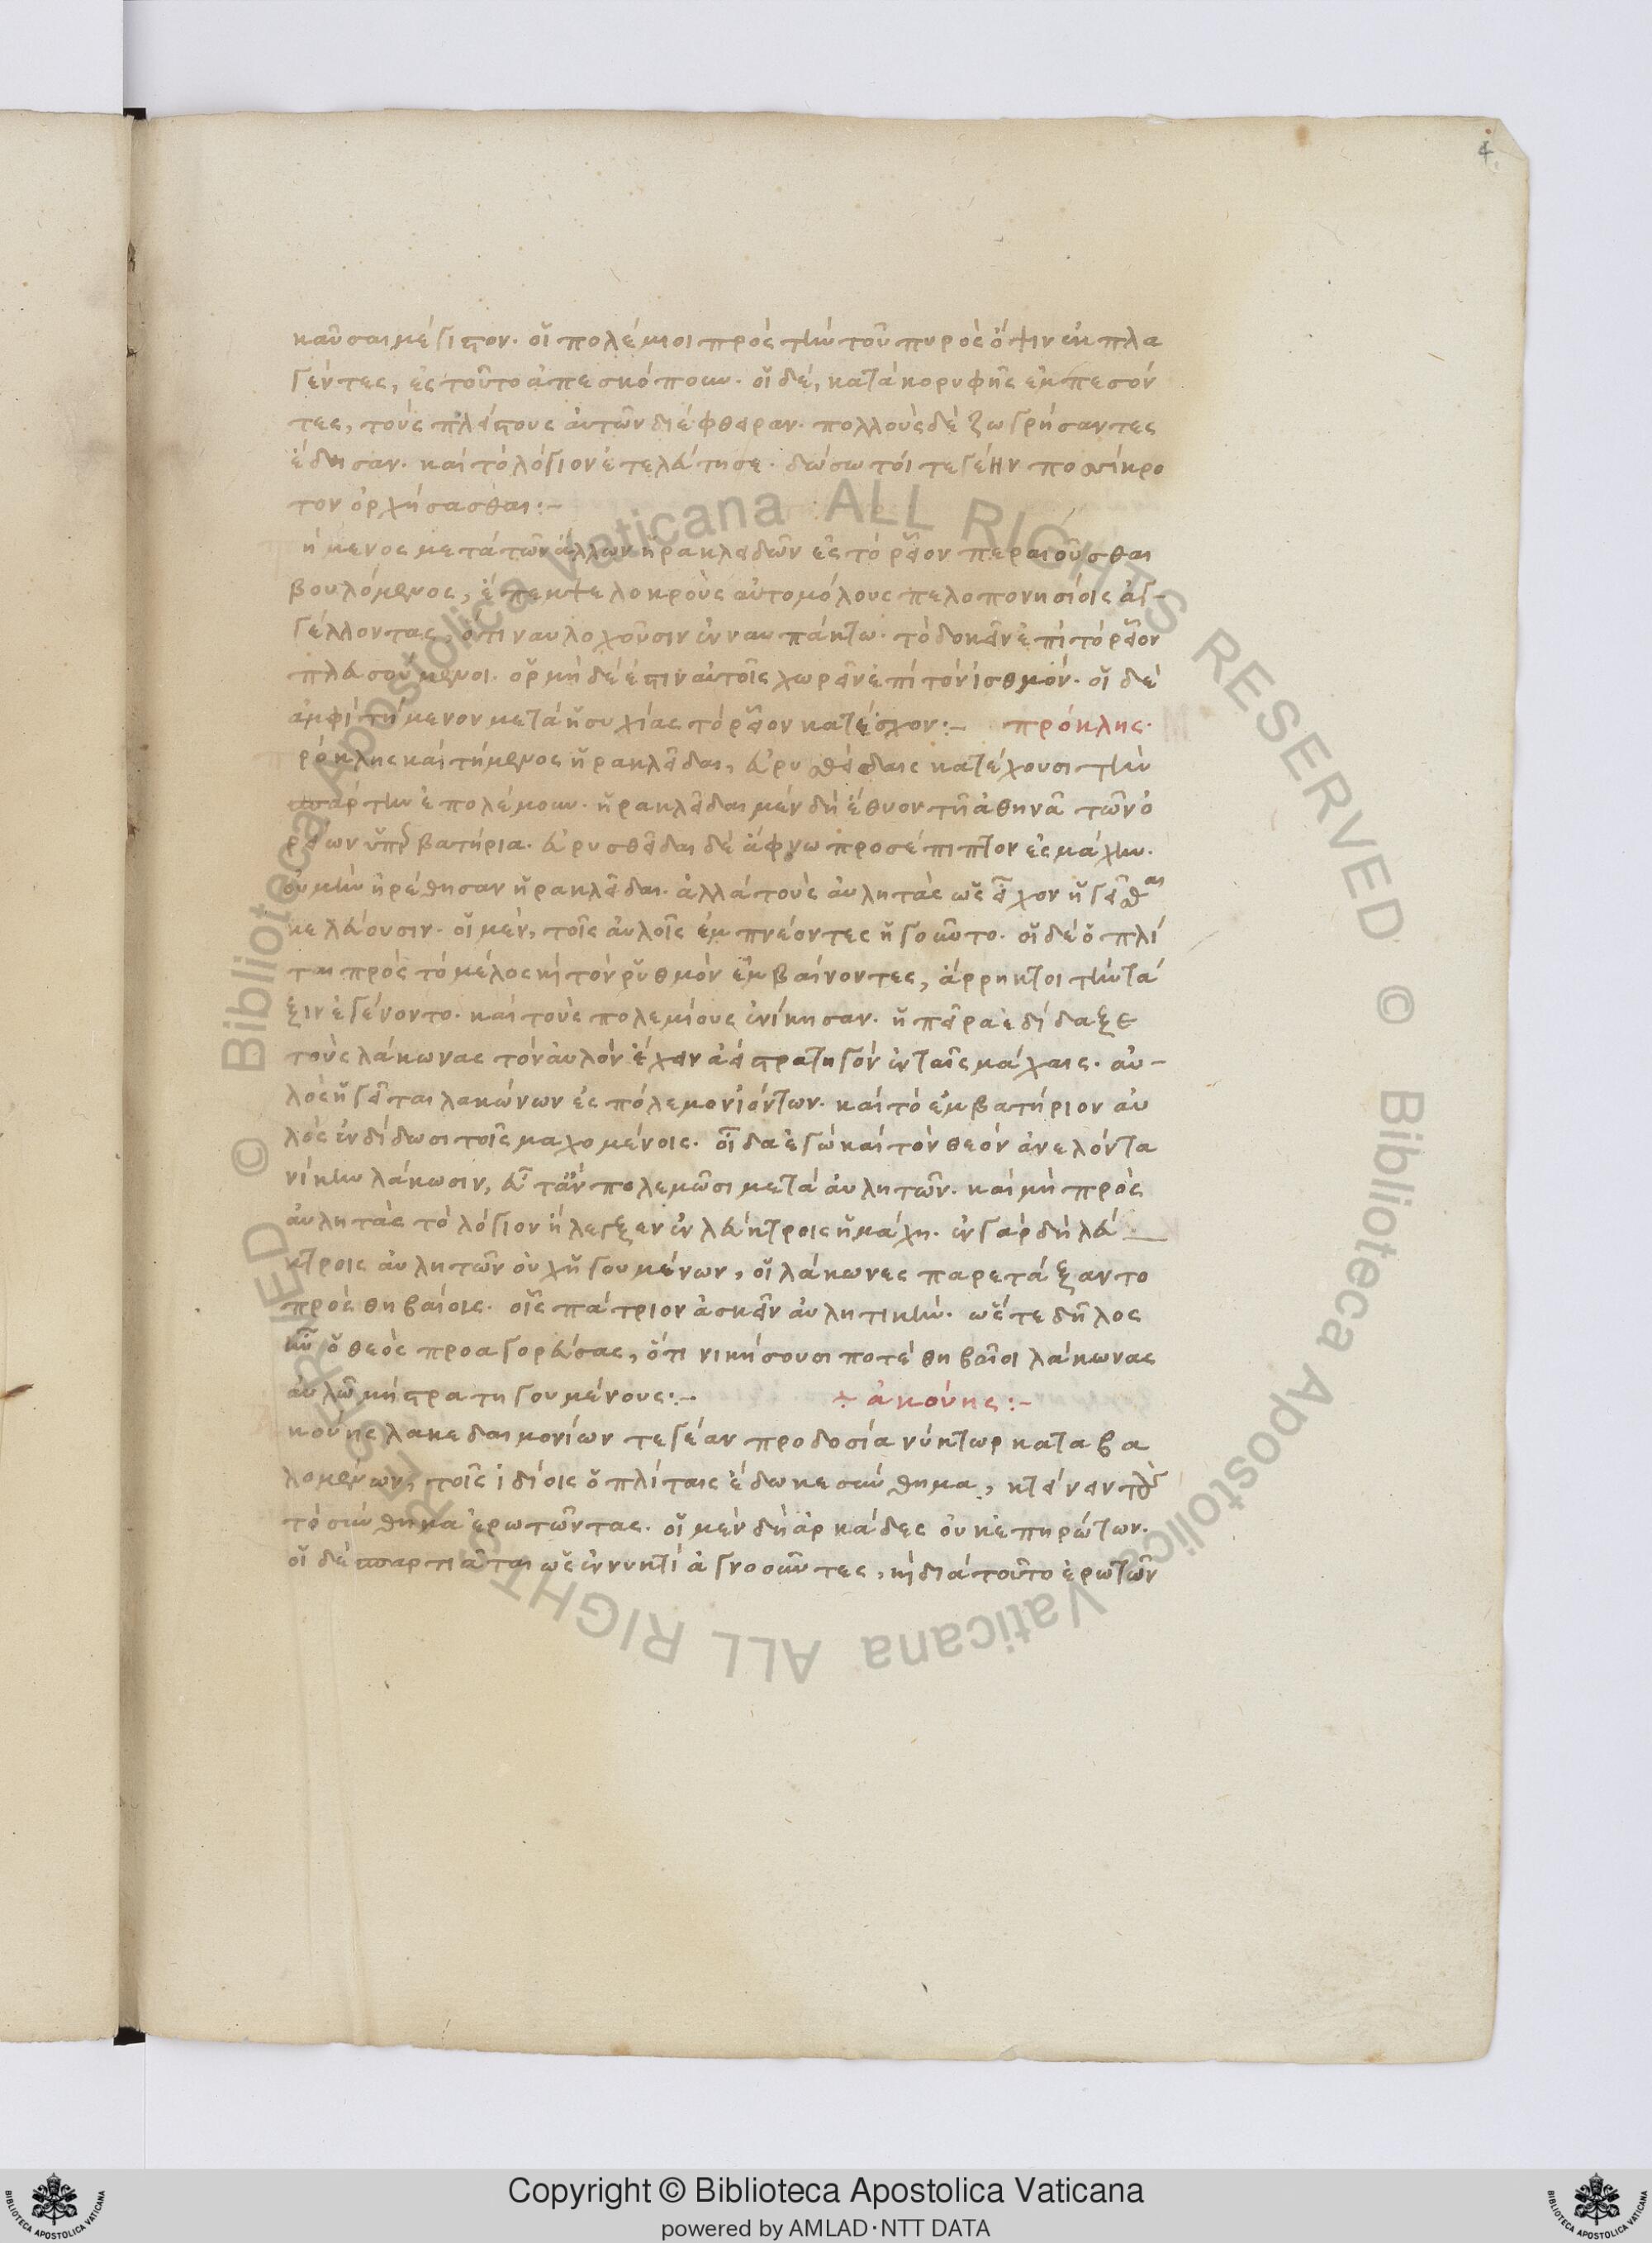 4
καῦσαι μέγιστον. οἱ πολέμιοι πρὸς τὴν τοῦ πυρὸς ὄψιν ἐκπλα
γέντες, ἐς τοῦτο ἀπεσκόπουν. οἱ δέ, κατὰ κορυφῆς ἐκπεσόν
τες, τοὺς πλείστους αὐτῶν διέφθειραν. πολλοὺς δὲ ζωγρήσαντες
ἔδησαν. καὶ τὸ λόγιον ἐτελεύτησε. δώσω τοι τεγέην ποσίκρο
τον ὀρχήσασθαι:-
ήμενος μετὰ τῶν ἄλλων ἡρακλειδῶν εἰς τὸ ῥεῖον περαιοῦσθαι
βουλόμενος, ἔπεμψε λοκροὺς αὐτομόλους πελοπονησίοις ἀγ-
γέλλοντας, ὅτι ναυλοχοῦσιν ἐν ναυπάκτω. τὸ δοκεῖν ἐπὶ τὸ ῥεῖον
πλευσούμενοι. ὁρμὴ δέ ἐστιν αὐτοῖς χωρεῖν ἐπὶ τὸν ἰσθμόν. οἱ δὲ
ἀμφὶ τήμενον μετὰ ἡσυχίας τὸ ῥεῖον κατέσχον:- πρόκλης.
ρόκλης καὶ τήμενος ἡρακλεῖδαι, εὐρυσθείδαις κατέχουσι τὴν
σπάρτην ἐπολέμουν. ἡρακλεῖδαι μὲν δὴ ἔθυον τῆ ἀθηνᾶ τῶν ὀ
ρείων ὑπερβατήρια. εὐρυσθεῖδαι δὲ ἄφνω προσέπιπτον ἐς μάχην.
οὐ μὴν ἡρέθησαν ἡρακλεῖδαι. ἀλλὰ τοὺς αὐλητὰς ὡς εἶχον ἡγεῖσθαι
κελεύουσιν. οἱ μέν, τοῖς αὐλοῖς ἐμπνέοντες ἡγοῦντο. οἱ δὲ ὁπλί
ται πρὸς τὸ μέλος καὶ τὸν ῥυθμὸν ἐμβαίνοντες, ἄρρηκτοι τὴν τά
ξιν ἐγένοντο. καὶ τοὺς πολεμίους ἐνίκησαν. ἡ πεῖρα ἐδίδαξε
τοὺς λάκωνας τὸν αὐλὸν ἔχειν ἀεὶ στρατηγὸν ἐν ταῖς μάχαις. αὐ-
λὸς ἡγεῖται λακώνων ἐς πόλεμον ἰόντων. καὶ τὸ ἐμβατήριον αὐ
λὸς ἐνδίδωσι τοῖς μαχομένοις. οἶδα ἐγὼ καὶ τὸν θεὸν ἀνελόντα
νίκην λάκωσιν, εὖτ ἂν πολεμῶσι μετὰ αὐλητῶν. καὶ μὴ πρὸς
αὐλητὰς τὸ λόγιον ἤλεγξεν ἐν λεύκτροις ἡ μάχη. ἐν γὰρ δὴ λεύ
κτροις αὐλητῶν οὐχ ἡγουμένων, οἱ λάκωνες παρετάξαντο
πρὸς θηβαίοις. οἷς πάτριον ἀσκεῖν αὐλητικήν. ὥστε δῆλος
ἦν ὁ θεὸς προαγορεύσας, ὅτι νικήσουσι ποτὲ θηβαῖοι λάκωνας
αὐλῶ μὴ στρατηγουμένους:- + ἀκούης:-
κούης λακεδαιμονίων τεγέαν προδοσία νύκτωρ καταβα
λομένων, τοῖς ἰδίοις ὁπλίταις ἔδωκε σύνθημα, κτείνειν τοὺς
τὸ σύνθημα ἐρωτῶντας. οἱ μὲν δὴ ἀρκάδες οὐκ ἐπηρώτων.
οἱ δὲ σπαρτιᾶται ὡς ἐν νυκτὶ ἀγνοοῦντες, καὶ διὰ τοῦτο ἐρωτῶν
© Biblioteca Apostolica Vaticana ALL RIGHTS RESERVED © Biblioteca Apostolica Vaticana ALL RIGHTS RESERVED
Copyright © Biblioteca Apostolica Vaticana
powered by AMLAD·NTT DATA
BIBLIOTECA APOSTOLICA VATICANA
BIBLIOTECA APOSTOLICA VATICANA